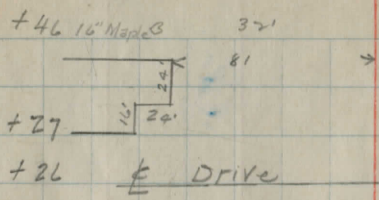 +46 16" Maple 32'
81
24'
16' 24'
+27
+26 ℄ Drive